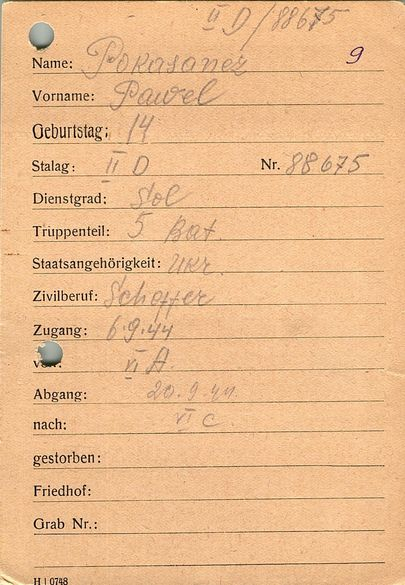 II D/88675
9
Name: Pokasanez
Vorname: Pawel
Geburtstag: 14
Stalag: II D Nr. 88675
Dienstgrad: Sol
Truppenteil: 5 Bat.
Staatsangehörigkeit: Ukr.
Zivilberuf: Schoffer
Zugang: 6.9.44
von: VI A.
Abgang: 20.9.44.
nach: VI C.
gestorben:
Friedhof:
Grab Nr.:
H | 0748